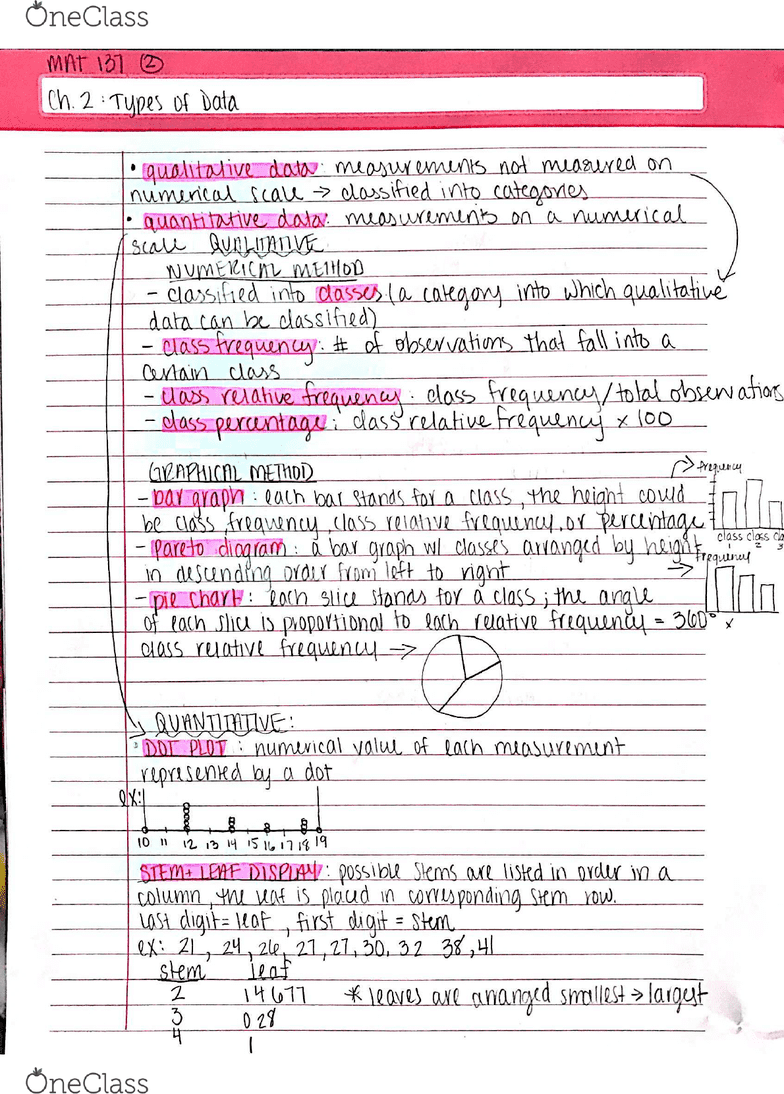 OneClass
MAT 137 ②
Ch. 2 : Types of Data
• qualitative data: measurements not measured on
numerical scale → classified into categories
• quantitative data: measurements on a numerical
scale QUALITATIVE
NUMERICAL METHOD
- classified into classes (a category into which qualitative
data can be classified)
- class frequency: # of observations that fall into a
certain class
- class relative frequency: class frequency/total observations
- class percentage: class relative frequency x 100
GRAPHICAL METHOD
→ frequency
- bar graph: each bar stands for a class, the height could
be class frequency, class relative frequency, or percentage
class class cla
1 2 3
- pareto diagram: a bar graph w/ classes arranged by height
frequency
in descending order from left to right →
- pie chart: each slice stands for a class; the angle
of each slice is proportional to each relative frequency = 360° x
class relative frequency →
QUANTITATIVE:
DOT PLOT : numerical value of each measurement
represented by a dot
ex:
10 11 12 13 14 15 16 17 18 19
STEM + LEAF DISPLAY: possible stems are listed in order in a
column, the leaf is placed in corresponding stem row.
last digit = leaf, first digit = stem
ex: 21, 24, 26, 27, 27, 30, 32 38, 41
stem leaf
2 14677 * leaves are arranged smallest → largest
3 028
4 1
OneClass